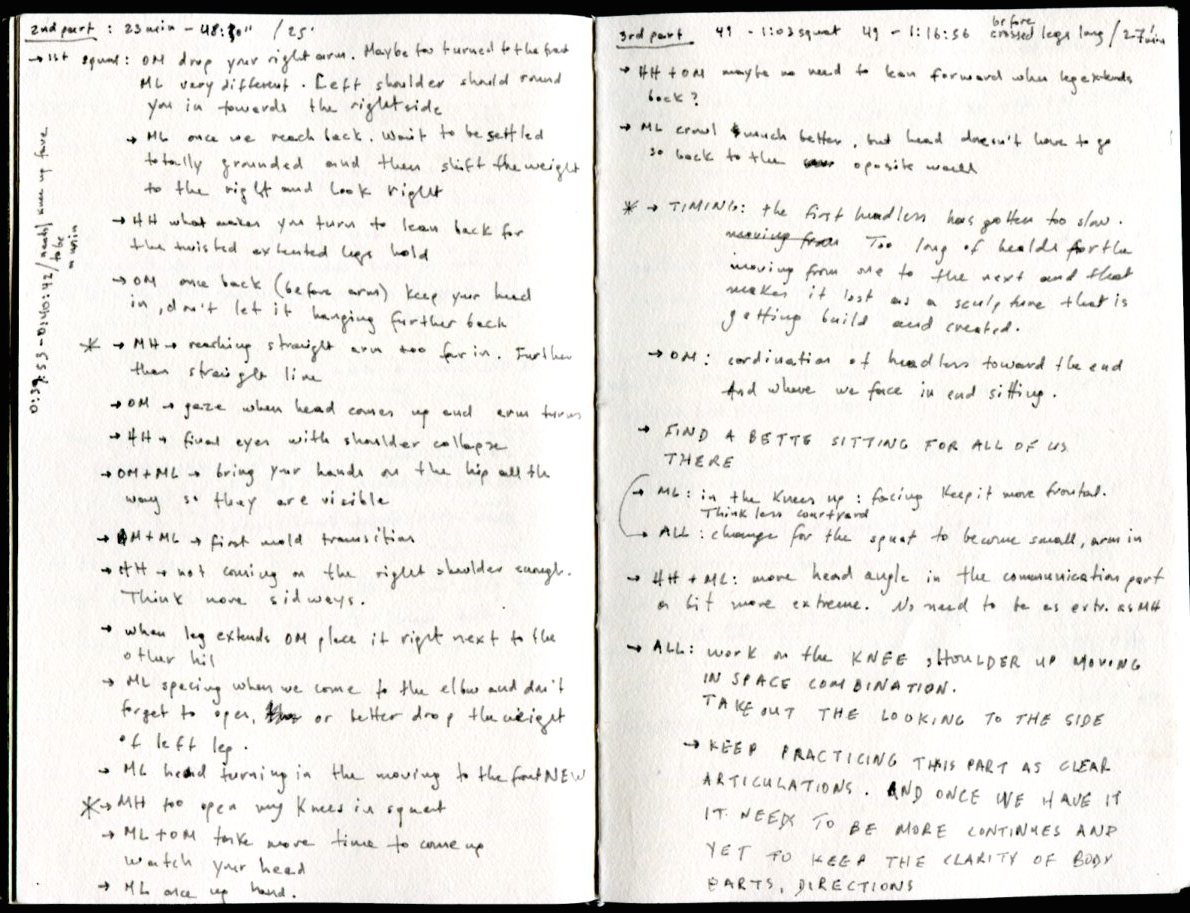 2nd part : 23min - 48:30" / 25'
→ 1st squat: OM drop your right arm. Maybe too turned to the front
ML very different. Left shoulder should round
you in towards the right side
→ ML once we reach back. Wait to be settled
totally grounded and then shift the weight
to the right and look right
→ HH what makes you turn to lean back for
the twisted extented legs hold
→ OM once back (before arm) keep your head
in, don't let it hanging further back
* → MH → reaching straight arm too far in. Further
than straight line
→ OM → gaze when head comes up and arm turns
→ HH → final eyes with shoulder collapse
→ OM + ML → bring your hands on the hip all the
way so they are visible
→ OM + ML → first mold transition
→ HH → not coming on the right shoulder enough.
Think more sidways.
→ when leg extends OM place it right next to the
other
→ ML spacing when we come to the elbow and don't
forget to open, or better drop the weight
of left leg.
→ ML head turning in the moving to the front NEW
* → MH too open my knees in squat
→ ML + OM take more time to come up
watch your head
→ ML once up hand.
0:39:53 - 0:40:42 / knee up face
to be
3rd part 49 - 1:03 squat 49 - 1:16:56 before crossed legs long / 27'min
→ HH + OM maybe no need to lean forward when leg extends
back?
→ ML crawl much better, but head doesn't have to go
so back to the oposite wall
* → TIMING: the first headless has gotten too slow.
moving from Too long of healds for the
moving from one to the next and that
makes it lost as a sculpture that is
getting build and created.
→ OM: cordination of headless toward the end
And where we face in end sitting.
→ FIND A BETTE SITTING FOR ALL OF US
THERE
→ ML: in the knees up: facing keep it more frontal.
Think less courtyard
→ ALL: change for the squat to become small, arm in
→ HH + ML: more head angle in the communication part
a bit more extreme. No need to be as extr. as MH
→ ALL: work on the KNEE SHOULDER UP MOVING
IN SPACE COMBINATION.
TAKE OUT THE LOOKING TO THE SIDE
→ KEEP PRACTICING THIS PART AS CLEAR
ARTICULATIONS. AND ONCE WE HAVE IT
IT NEEDS TO BE MORE CONTINUES AND
YET TO KEEP THE CLARITY OF BODY
PARTS, DIRECTIONS